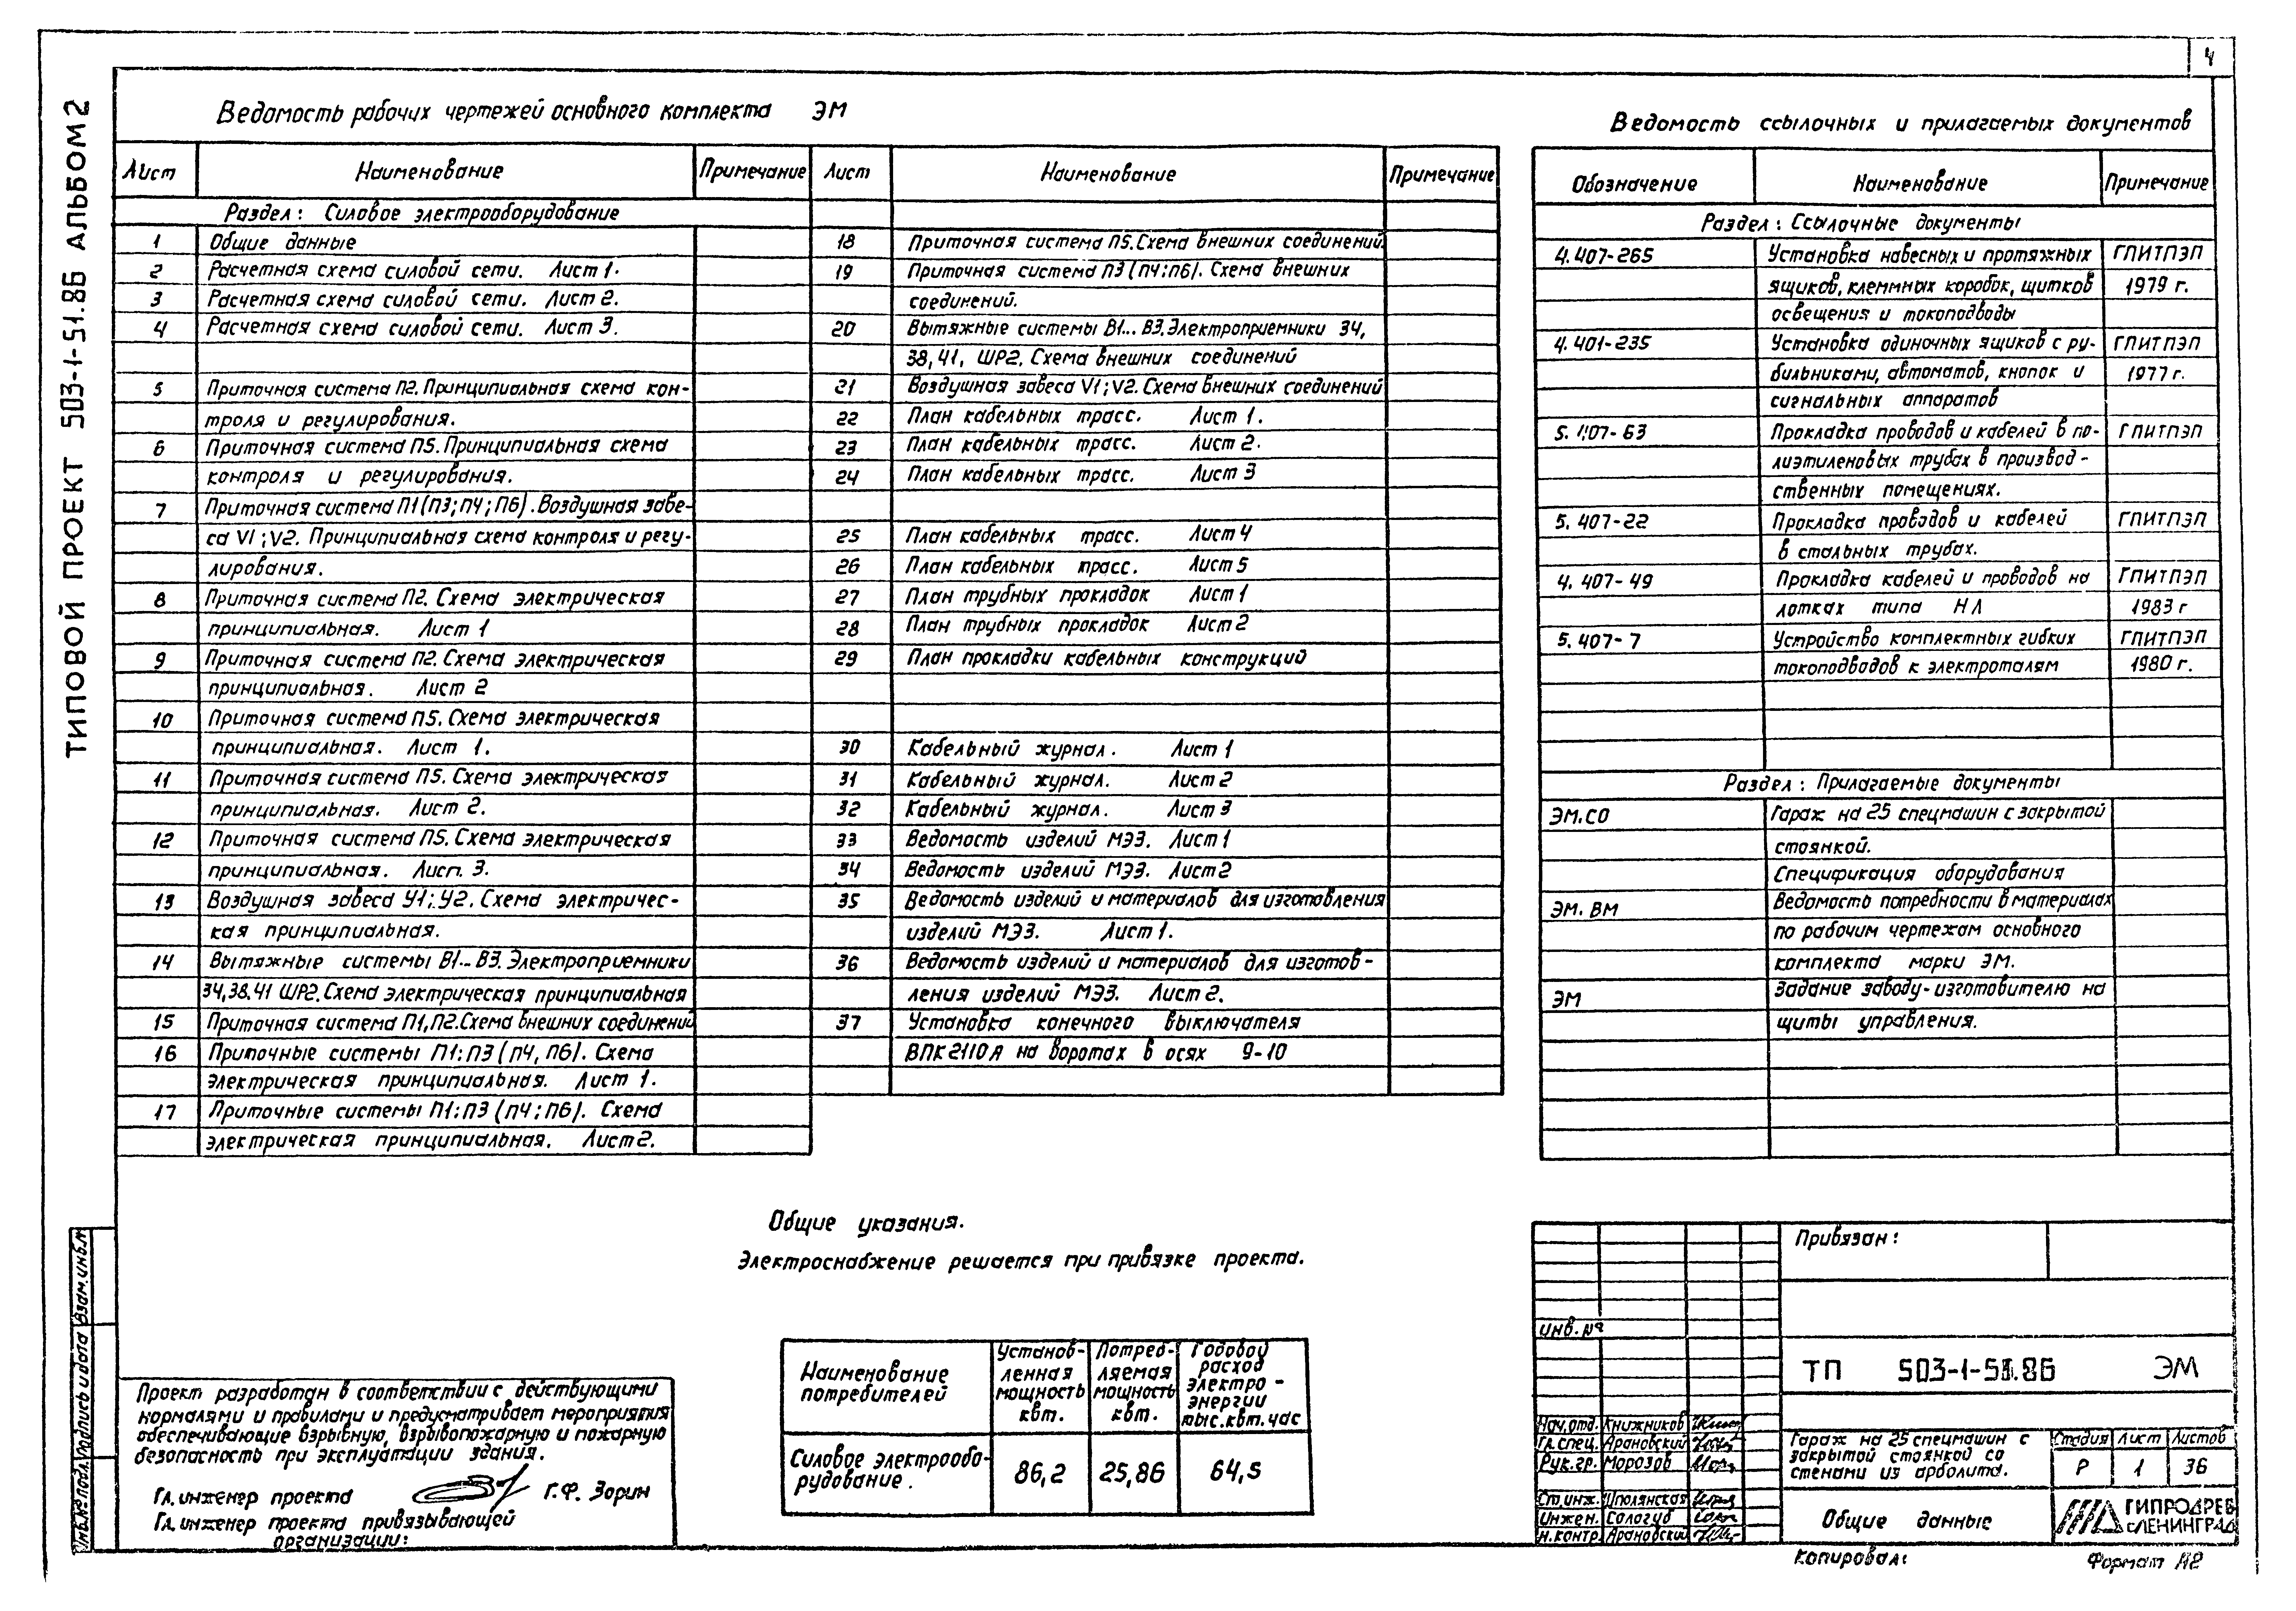 4
ТИПОВОЙ ПРОЕКТ 503-1-51.86 АЛЬБОМ 2
Ведомость рабочих чертежей основного комплекта ЭМ
Лист Наименование Примечание
Раздел: Силовое электрооборудование
1 Общие данные
2 Расчетная схема силовой сети. Лист 1.
3 Расчетная схема силовой сети. Лист 2.
4 Расчетная схема силовой сети. Лист 3.
5 Приточная система П2. Принципиальная схема кон-
троля и регулирования.
6 Приточная система П5. Принципиальная схема
контроля и регулирования.
7 Приточная система П1 (П3; П4; П6). Воздушная заве-
са V1; V2. Принципиальная схема контроля и регу-
лирования.
8 Приточная система П2. Схема электрическая
принципиальная. Лист 1
9 Приточная система П2. Схема электрическая
принципиальная. Лист 2
10 Приточная система П5. Схема электрическая
принципиальная. Лист 1.
11 Приточная система П5. Схема электрическая
принципиальная. Лист 2.
12 Приточная система П5. Схема электрическая
принципиальная. Лист. 3.
13 Воздушная завеса У1; У2. Схема электричес-
кая принципиальная.
14 Вытяжные системы В1... В3. Электроприемники
34, 38. 41 ШР2. Схема электрическая принципиальная
15 Приточная система П1, П2. Схема внешних соединений
16 Приточные системы П1: П3 (П4, П6). Схема
электрическая принципиальная. Лист 1.
17 Приточные системы П1: П3 (П4; П6). Схема
электрическая принципиальная. Лист 2.
Лист Наименование Примечание
18 Приточная система П5. Схема внешних соединений.
19 Приточная система П3 (П4; П6). Схема внешних
соединений.
20 Вытяжные системы В1... В3. Электроприемники 34,
38, 41, ШР2. Схема внешних соединений
21 Воздушная завеса V1; V2. Схема внешних соединений
22 План кабельных трасс. Лист 1.
23 План кабельных трасс. Лист 2.
24 План кабельных трасс. Лист 3
25 План кабельных трасс. Лист 4
26 План кабельных трасс. Лист 5
27 План трубных прокладок Лист 1
28 План трубных прокладок Лист 2
29 План прокладки кабельных конструкций
30 Кабельный журнал. Лист 1
31 Кабельный журнал. Лист 2
32 Кабельный журнал. Лист 3
33 Ведомость изделий МЭЗ. Лист 1
34 Ведомость изделий МЭЗ. Лист 2
35 Ведомость изделий и материалов для изготовления
изделий МЭЗ. Лист 1.
36 Ведомость изделий и материалов для изготов-
ления изделий МЭЗ. Лист 2.
37 Установка конечного выключателя
ВПК 2110А на воротах в осях 9-10
Ведомость ссылочных и прилагаемых документов
Обозначение Наименование Примечание
Раздел: Ссылочные документы
4.407-265 Установка навесных и протяжных ГПИТПЭП
ящиков, клеммных коробок, щитков 1979 г.
освещения и токоподводы
4.401-235 Установка одиночных ящиков с ру- ГПИТПЭП
бильниками, автоматов, кнопок и 1977 г.
сигнальных аппаратов
5.407-63 Прокладка проводов и кабелей в по- ГПИТПЭП
лиэтиленовых трубах в производ-
ственных помещениях.
5.407-22 Прокладка проводов и кабелей ГПИТПЭП
в стальных трубах.
4.407-49 Прокладка кабелей и проводов на ГПИТПЭП
лотках типа НЛ 1983 г
5.407-7 Устройство комплектных гибких ГПИТПЭП
токоподводов к электроталям 1980 г.
Раздел: Прилагаемые документы
ЭМ.СО Гараж на 25 спецмашин с закрытой
стоянкой.
Спецификация оборудования
ЭМ. ВМ Ведомость потребности в материалах
по рабочим чертежам основного
комплекта марки ЭМ.
ЭМ Задание заводу-изготовителю на
щиты управления.
Общие указания.
Электроснабжение решается при привязке проекта.
Наименование потребителей Установ-ленная мощность квт. Потреб-ляемая мощность квт. Годовой расход электро-энергии тыс.квт.час
Силовое электрообо-
рудование. 86,2 25,86 64,5
Проект разработан в соответствии с действующими
нормалями и правилами и предусматривает мероприятия
обеспечивающие взрывную, взрывопожарную и пожарную
безопасность при эксплуатации здания.
Гл. инженер проекта Г.Ф. Зорин
Гл. инженер проекта привязывающей
организации:
Инв.№ подл. Подпись и дата Взам.инв.№
Привязан:
инв. №
ТП 503-1-51.86 ЭМ
Нач.отд. Книжников
Гл. спец. Арановский
Рук.гр. Морозов
Ст.инж. Шполянская
Инжен. Сологуб
Н.контр. Арановский
Гараж на 25 спецмашин с
закрытой стоянкой со
стенами из арболита.
Стадия Лист Листов
Р 1 36
Общие данные
ГИПРОДРЕВ
г.ЛЕНИНГРАД
Копировал:
Формат А2